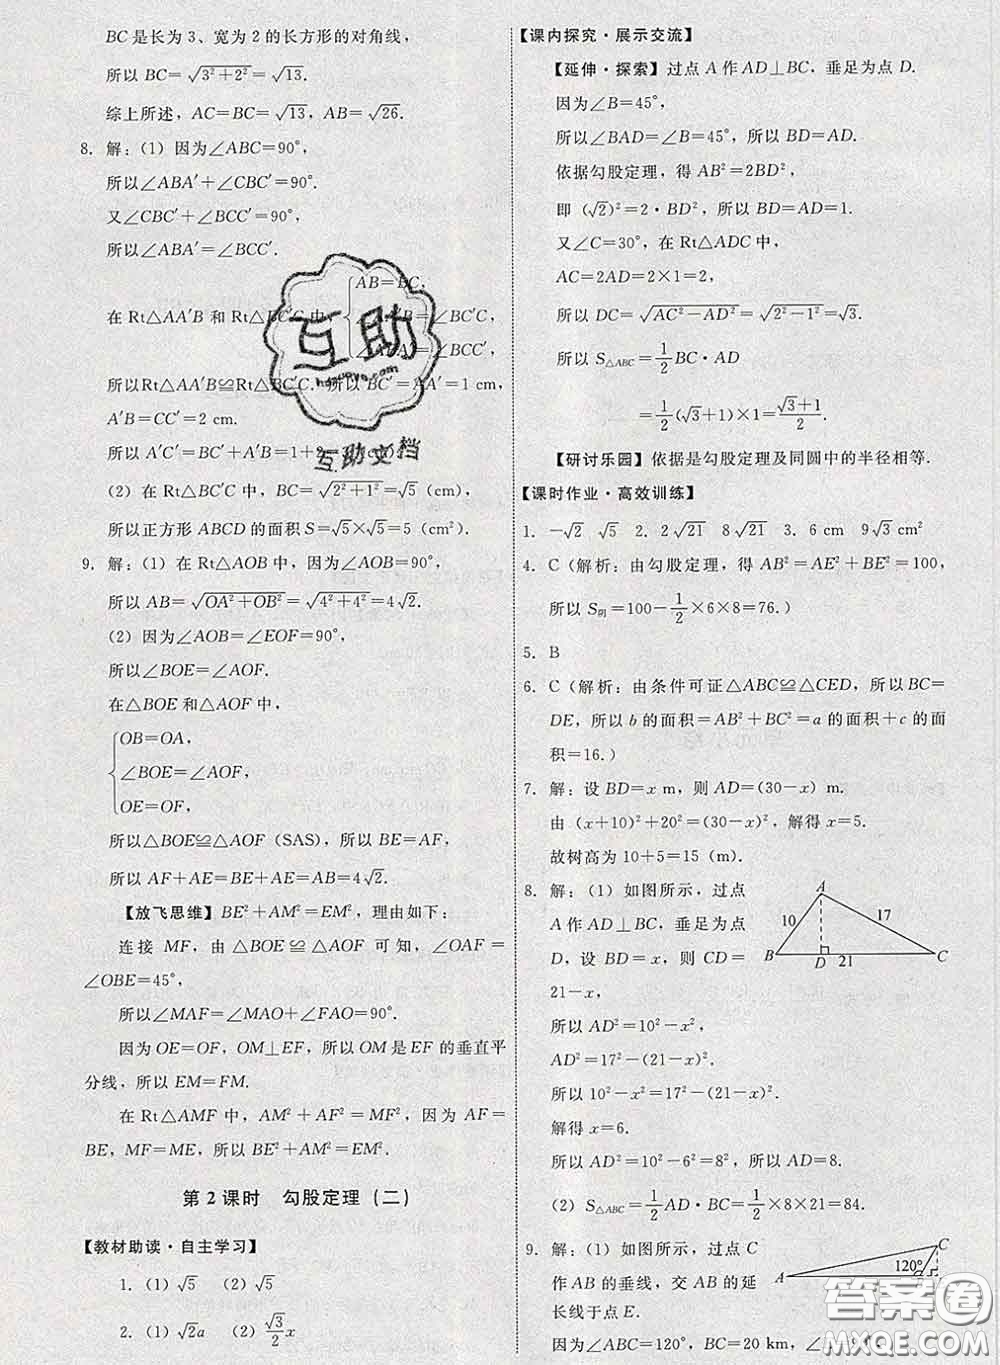 BC是长为3、宽为2的长方形的对角线,
所以 BC=√(3²+2²)=√13.
综上所述, AC=BC=√13, AB=√26.
8. 解:(1) 因为∠ABC=90°,
所以∠ABA′+∠CBC′=90°.
又∠CBC′+∠BCC′=90°,
所以∠ABA′=∠BCC′.
AB=BC,
在 Rt△AA′B 和 Rt△BC′C 中, =∠BC′C,
=∠BCC′,
所以Rt△AA′B≌Rt△BC′C. 所以 BC′=AA′=1 cm,
A′B=CC′=2 cm.
所以 A′C′=BC′+A′B=1+2
(2) 在 Rt△BC′C 中, BC=√(2²+1²)=√5 (cm),
所以正方形 ABCD 的面积 S=√5×√5=5 (cm²).
9. 解:(1) 在 Rt△AOB 中, 因为∠AOB=90°,
所以 AB=√(OA²+OB²)=√(4²+4²)=4√2.
(2) 因为∠AOB=∠EOF=90°,
所以∠BOE=∠AOF.
在△BOE 和△AOF 中,
OB=OA,
∠BOE=∠AOF,
OE=OF,
所以△BOE≌△AOF (SAS), 所以 BE=AF,
所以 AF+AE=BE+AE=AB=4√2.
【放飞思维】BE²+AM²=EM², 理由如下:
连接 MF, 由 △BOE ≌ △AOF 可知, ∠OAF =
∠OBE=45°,
所以∠MAF=∠MAO+∠FAO=90°.
因为 OE=OF, OM⊥EF, 所以 OM 是 EF 的垂直平
分线, 所以 EM=FM.
在 Rt△AMF 中, AM²+AF²=MF², 因为 AF=
BE, MF=ME, 所以 BE²+AM²=EM².
第2课时 勾股定理 (二)
【教材助读·自主学习】
1. (1) √5 (2) √5
2. (1) √2a (2) √3/2 x
【课内探究·展示交流】
【延伸·探索】过点 A 作 AD⊥BC, 垂足为点 D.
因为∠B=45°,
所以∠BAD=∠B=45°, 所以 BD=AD.
依据勾股定理, 得 AB²=2BD²,
即 (√2)²=2·BD², 所以 BD=AD=1.
又∠C=30°, 在 Rt△ADC 中,
AC=2AD=2×1=2,
所以 DC=√(AC²-AD²)=√(2²-1²)=√3.
所以 S△ABC=1/2 BC·AD
=1/2(√3+1)×1=(√3+1)/2.
【研讨乐园】依据是勾股定理及同圆中的半径相等.
【课时作业·高效训练】
1. -√2 √5 2. 2√21 8√21 3. 6 cm 9√3 cm²
4. C (解析: 由勾股定理, 得 AB²=AE²+BE²=100,
所以 S阴=100-1/2×6×8=76.)
5. B
6. C (解析: 由条件可证△ABC≌△CED, 所以 BC=
DE, 所以 b 的面积=AB²+BC²=a 的面积+c 的面
积=16.)
7. 解: 设 BD=x m, 则 AD=(30-x) m.
由 (x+10)²+20²=(30-x)², 解得 x=5.
故树高为 10+5=15 (m).
8. 解: (1) 如图所示, 过点
A 作 AD⊥BC, 垂足为点
D, 设 BD=x, 则 CD=
21-x,
A
10 17
B D 21 C
所以 AD²=10²-x²,
AD²=17²-(21-x)².
所以 10²-x²=17²-(21-x)².
解得 x=6.
所以 AD²=10²-6²=8².
所以 AD=8.
(2) S△ABC=1/2 AD·BC=1/2×8×21=84.
9. 解: (1) 如图所示, 过点 C
作 AB 的垂线, 交 AB 的延
长线于点 E.
C
A 120°
因为∠ABC=120°, BC=20 km,
互助
互助文档
答案圈
MXQE.COM